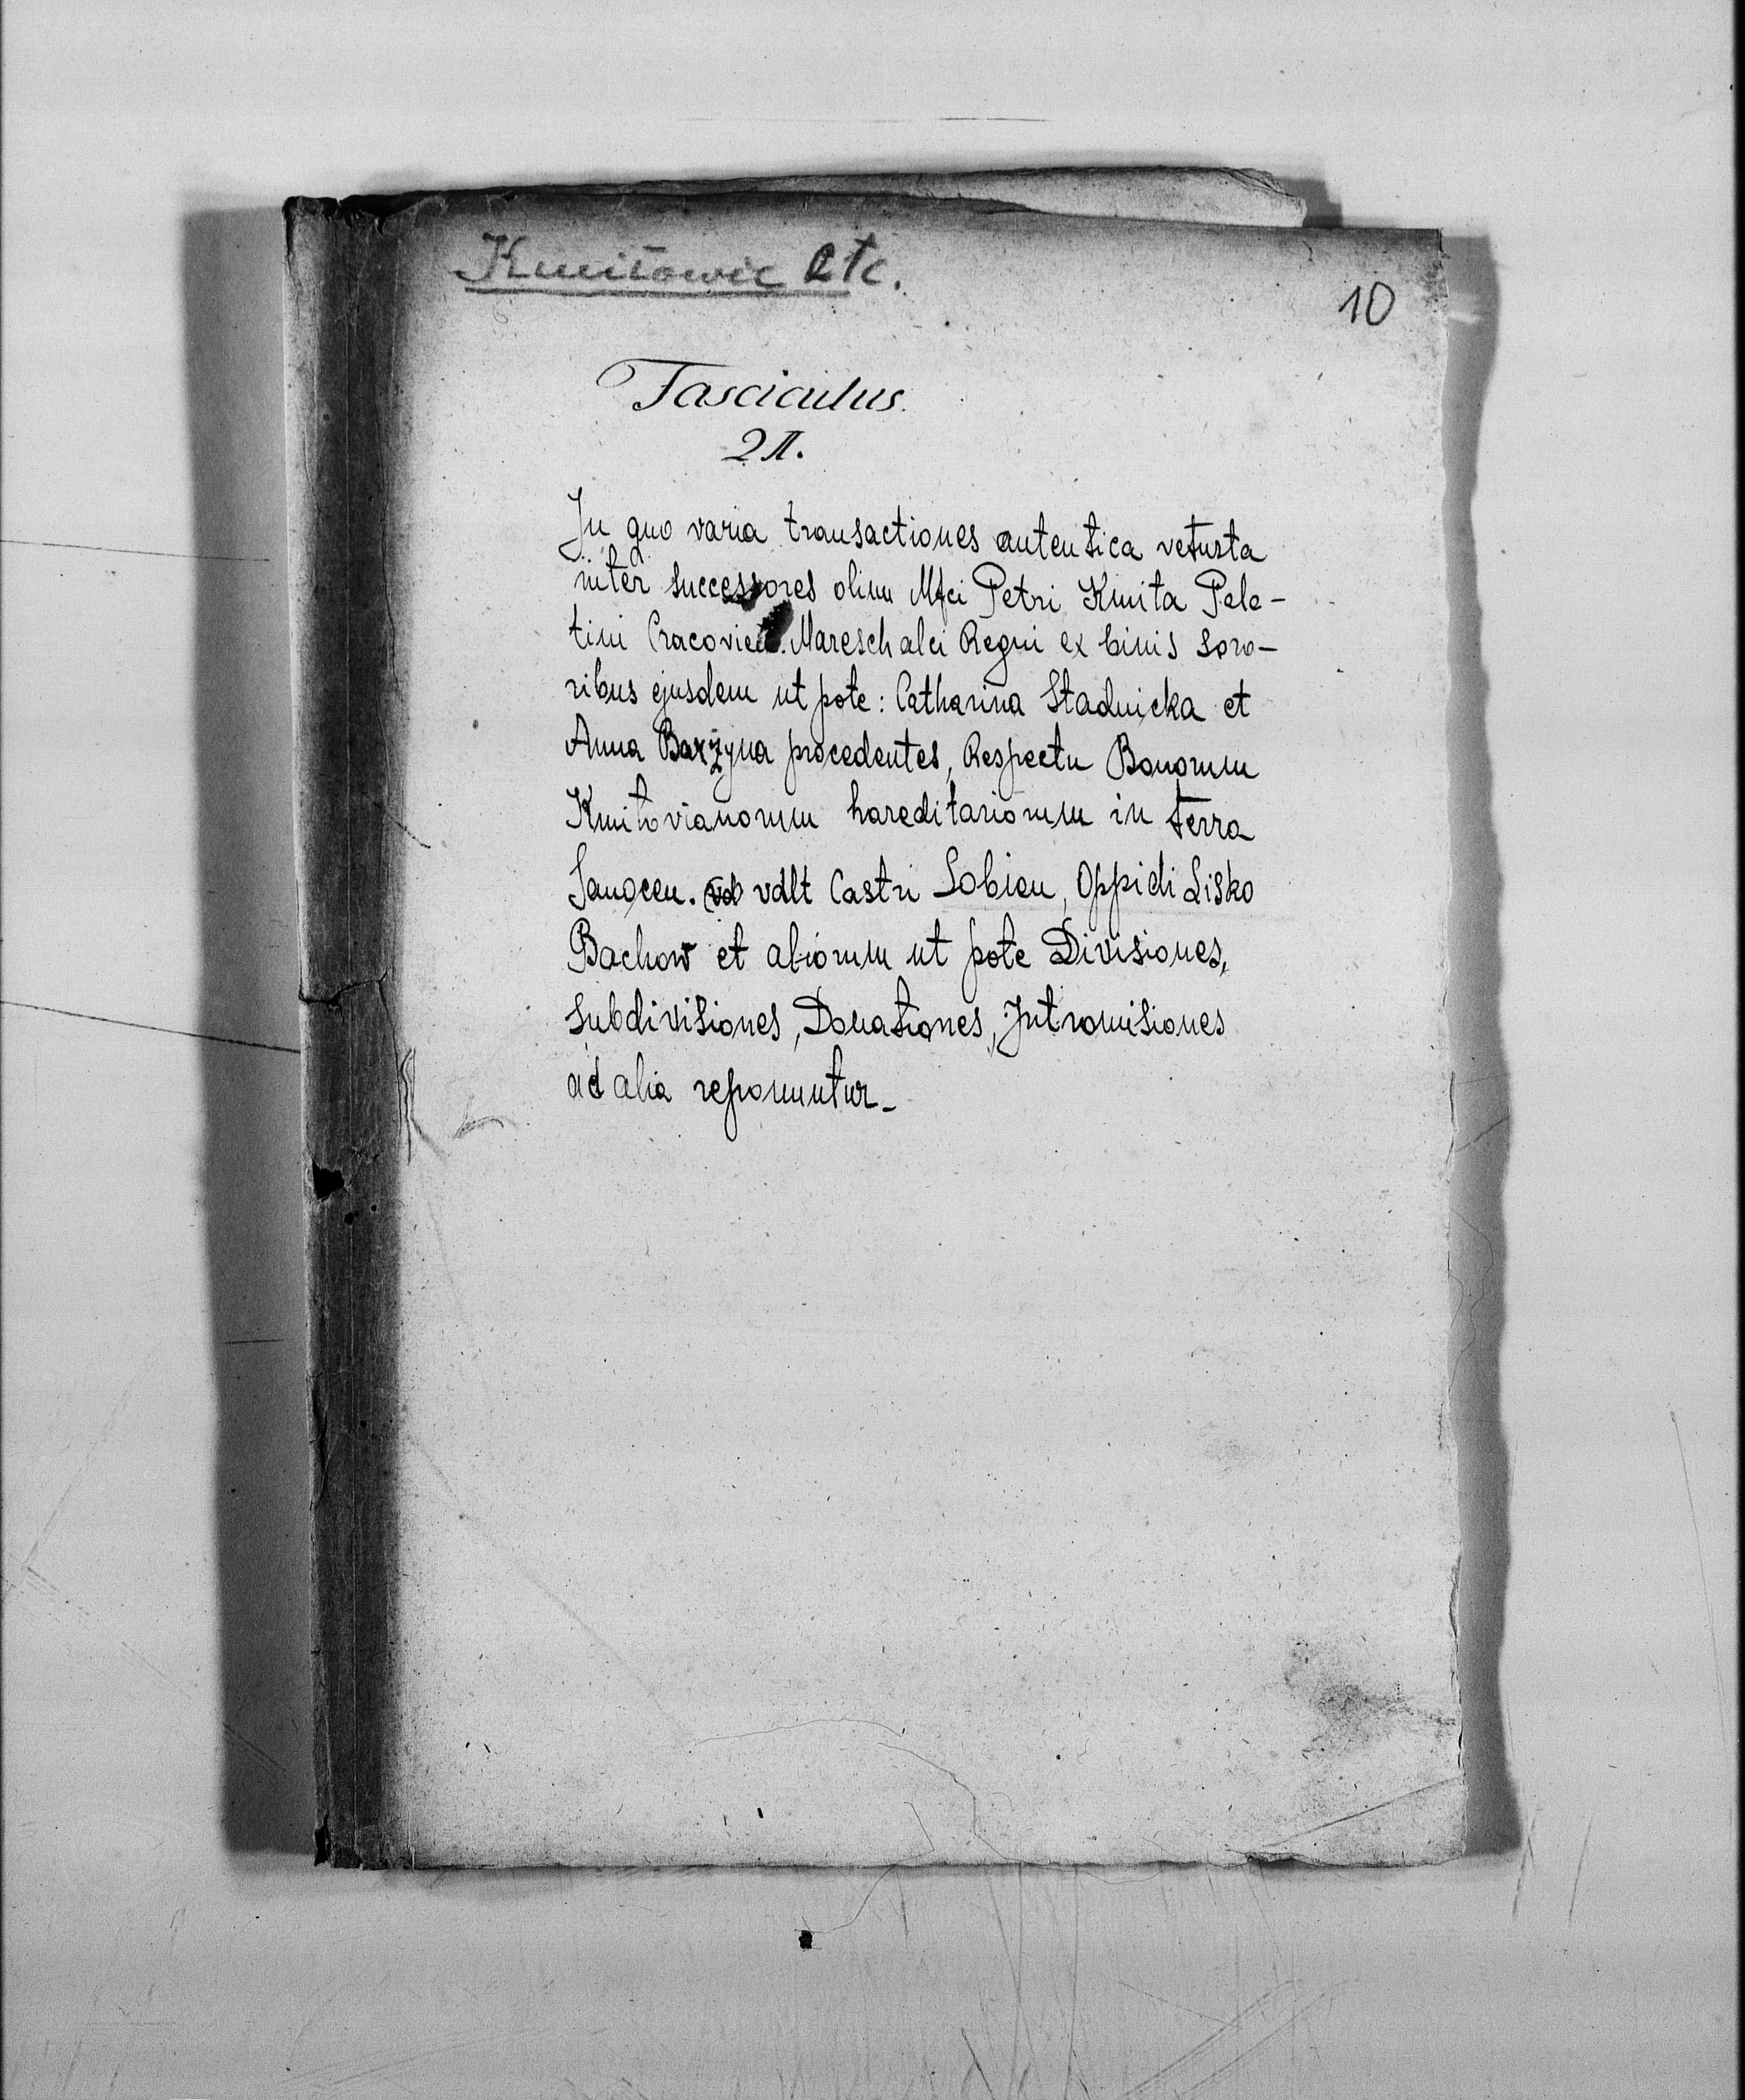 Kmitowie etc.
10
Fasciculus.
2 II.
In quo varia transactiones autentica vetusta
inter successores olim Mfci Petri Kmita Pala-
tini Cracovien. Mareschalci Regni ex binis soro-
ribus ejusdem ut pote: Catharina Stadnicka et
Anna Barzyna procedentes, Respectu Bonorum
Kmitovianorum hareditariorum in terra
Sanocen. vdlt Castri Sobien, Oppidi Lisko
Bachow et aliorum ut pote Divisiones,
Subdivisiones, Donationes, Intromisiones
ad alia reponuntur_